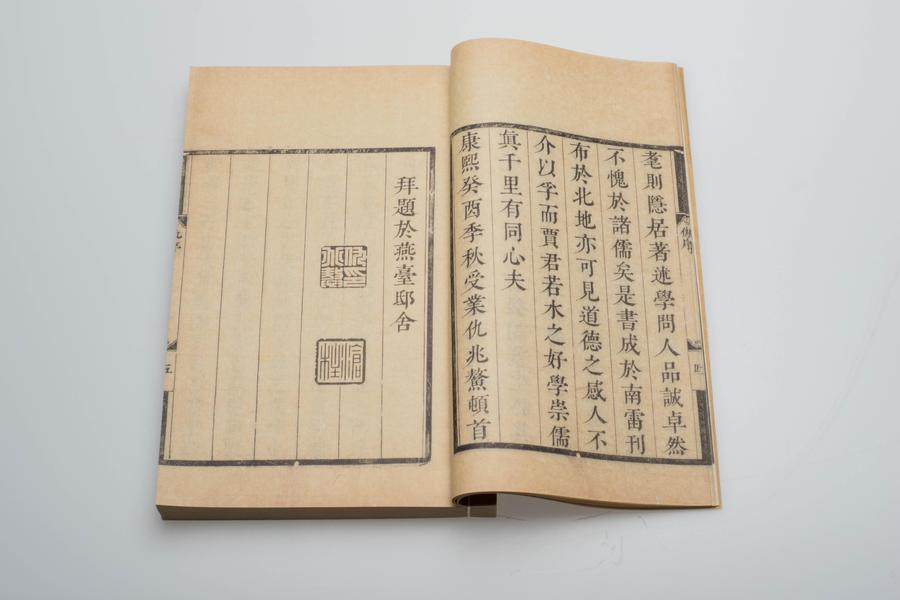 耄則隱居著述學問人品誠卓然
不愧於諸儒矣是書成於南雷刊
布於北地亦可見道德之感人不
介以孚而賈君若水之好學崇儒
眞千里有同心夫
康熙癸酉季秋受業仇兆鰲頓首
拜題於燕臺邸舍
滄柱
仇序
四
五